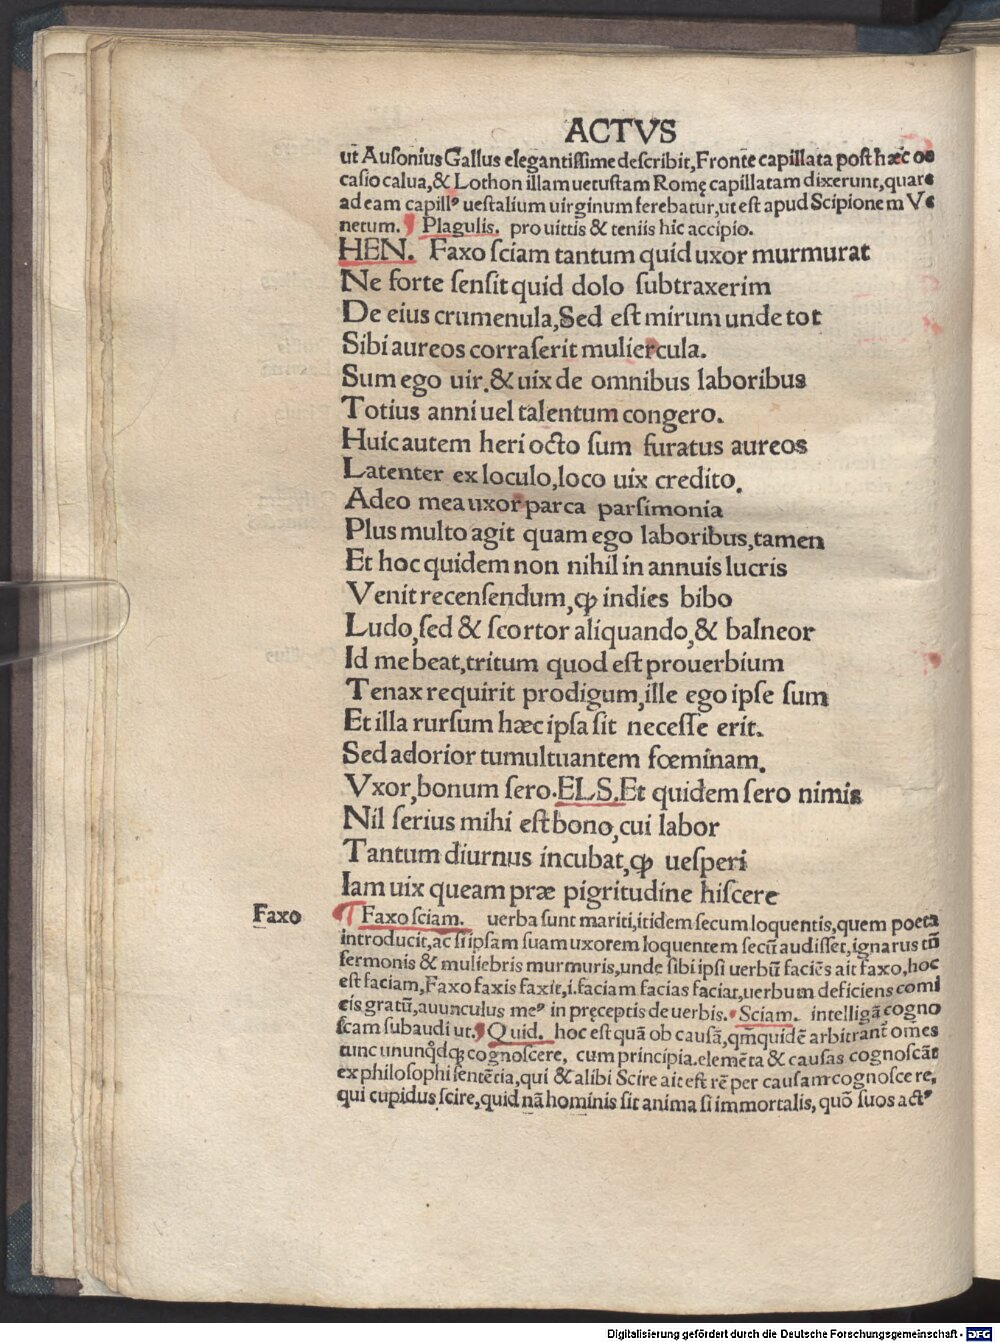 ACTVS
ut̄ Auſonius Gallus elegantiſſime deſcribit, Fronte capillata poſt hæc oc
caſio calua, & Lothon illam uetuſtam Romę capillatam dixerunt, quare
ad eam capillꝰ ueſtalium uirginum ferebatur, ut eſt apud Scipionem Ve
netum. ¶ Plagulis. pro uittis & teniis hic accipio.
HEN. Faxo ſciam tantum quid uxor murmurat
Ne forte ſenſit quid dolo ſubtraxerim
De eius crumenula, Sed eſt mirum unde tot
Sibi aureos corraſerit muliercula.
Sum ego uir. & uix de omnibus laboribus
Totius anni uel talentum congero.
Huic autem heri octo ſum furatus aureos
Latenter ex loculo, loco uix credito.
Adeo mea uxor parca parſimonia
Plus multo agit quam ego laboribus, tamen
Et hoc quidem non nihil in annuis lucris
Venit recenſendum, ꝙ indies bibo
Ludo, ſed & ſcortor aliquando, & balneor
Id me beat, tritum quod eſt prouerbium
Tenax requirit prodigum, ille ego ipſe ſum
Et illa rurſum hæc ipſa ſit neceſſe erit.
Sed adorior tumultuantem fœminam.
Vxor, bonum ſero. ELS. Et quidem ſero nimis
Nil ſerius mihi eſt bono, cui labor
Tantum diurnus incubat, ꝙ ueſperi
Iam uix queam præ pigritudine hiſcere
Faxo
¶ Faxo ſciam. uerba ſunt mariti, itidem ſecum loquentis, quem poeta
introducit, ac ſi ipſam ſuam uxorem loquentem ſecū audiſſet, ignarus tn̄
ſermonis & muliebris murmuris, unde ſibi ipſi uerbū faciēs ait faxo, hoc
eſt faciam, Faxo faxis faxit, i. faciam facias faciat, uerbum deficiens comi
cis gratū, auunculus meꝰ in pręceptis de uerbis. ¶ Sciam. intelligā cogno
ſcam ſubaudi ut. ¶ Quid. hoc eſt quā ob cauſā, qm̄ quidē arbitrant̄ omēs
tunc unūqdꝗ cognoſcere, cum principia. elemēta & cauſas cognoſcāt
ex philoſophi ſentētia, qui & alibi Scire ait eſt rē per cauſam cognoſcere,
qui cupidus ſcire, quid nā hominis ſit anima ſi immortalis, quō ſuos actꝰ
Digitalisierung gefördert durch die Deutsche Forschungsgemeinschaft - DFG